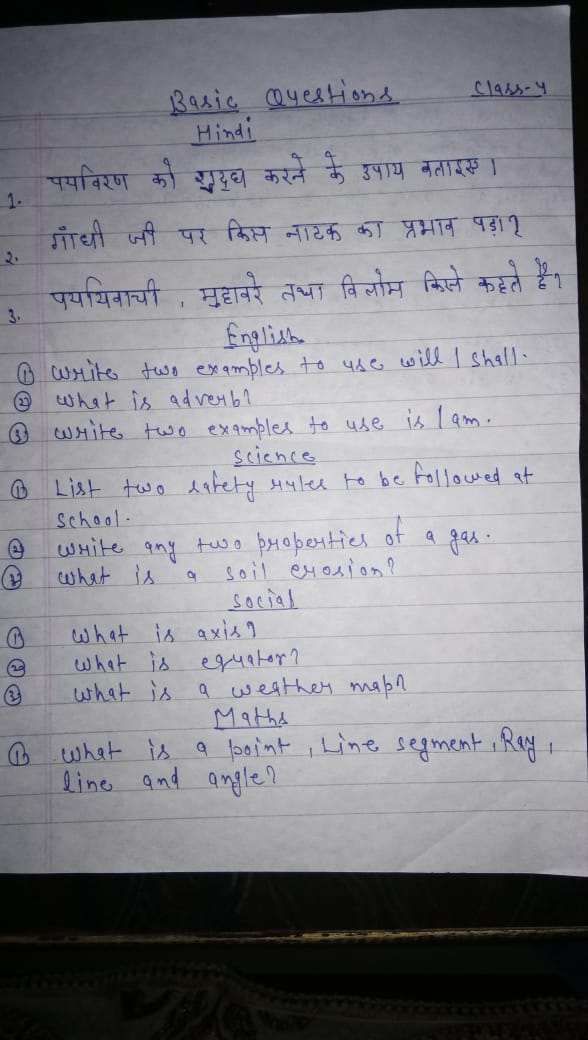 Basic Questions Class-4
Hindi
1. पर्यावरण को शुद्ध करने के उपाय बताइए।
2. गाँधी जी पर किस नाटक का प्रभाव पड़ा?
3. पर्यायवाची, मुहावरे तथा विलोम किसे कहते है?
English
① Write two examples to use will / shall.
② What is adverb?
③ Write two examples to use is / am.
Science
① List two safety rules to be followed at
school.
② Write any two properties of a gas.
③ What is a soil erosion?
Social
① What is axis?
② What is equator?
③ What is a weather map?
Maths
① What is a point, Line segment, Ray,
line and angle?